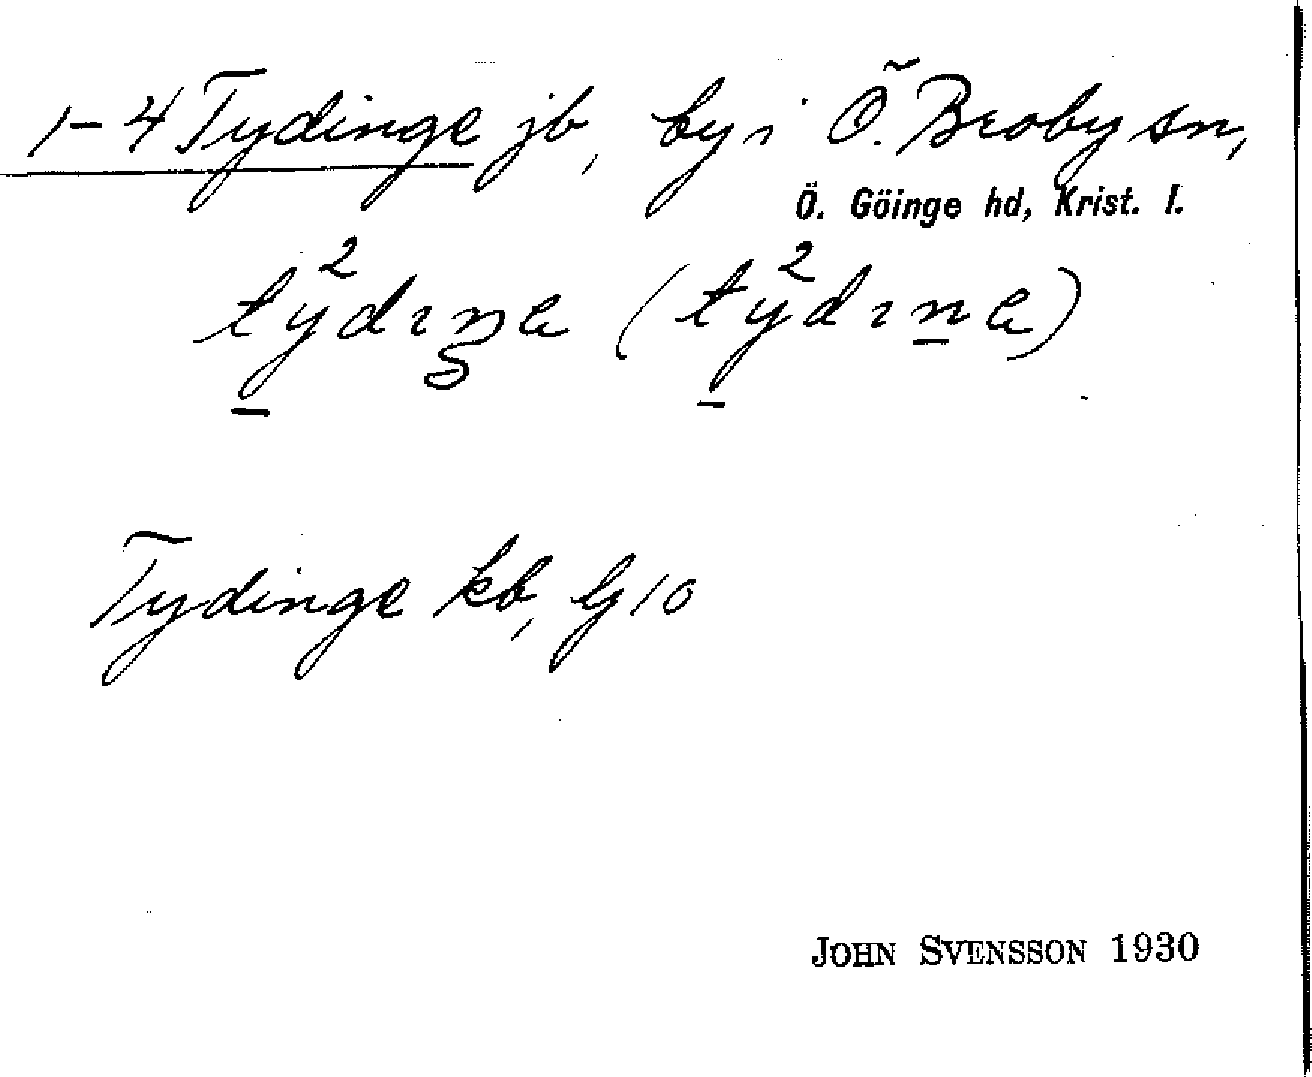 1-4 Tydinge jb, by i Ö. Broby sn,
Ö. Göinge hd, Krist. l.
Tydinge kb, G10
JOHN SVENSSON 1930